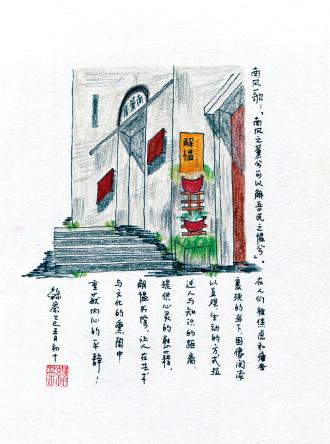 南风歌：“南风之薰兮可以解吾民之愠兮。
在人们被焦虑和
裹挟的当下，图像阅读
以直观、生动的方式拉
近人与知识的距离
提供心灵的慰藉。
解愠书馆，让人在艺术
与文化的熏陶中
重获内心的平静！
乙巳五月初十
解愠